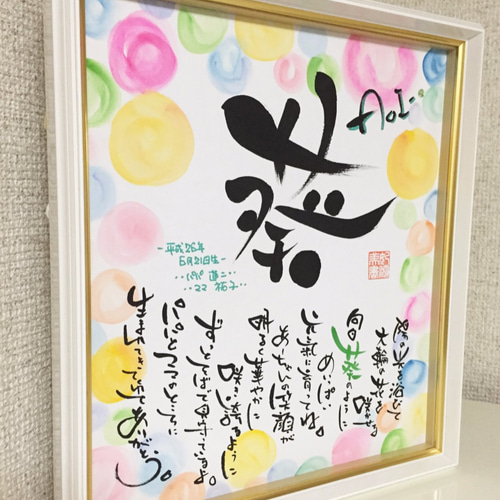 葵
AOI
-平成26年
6月21日生-
・・パパ 蓮二・・
・・ママ 祐子・・
陽の光を浴びて
大輪の花を咲かせる
向日葵のように
めいっぱい
元氣に育ってね。
あなたの笑顔が
明るく華やかに
咲き誇るように
ずっとそばで見守っているよ。
パパとママのところに
生まれてきてくれてありがとう。